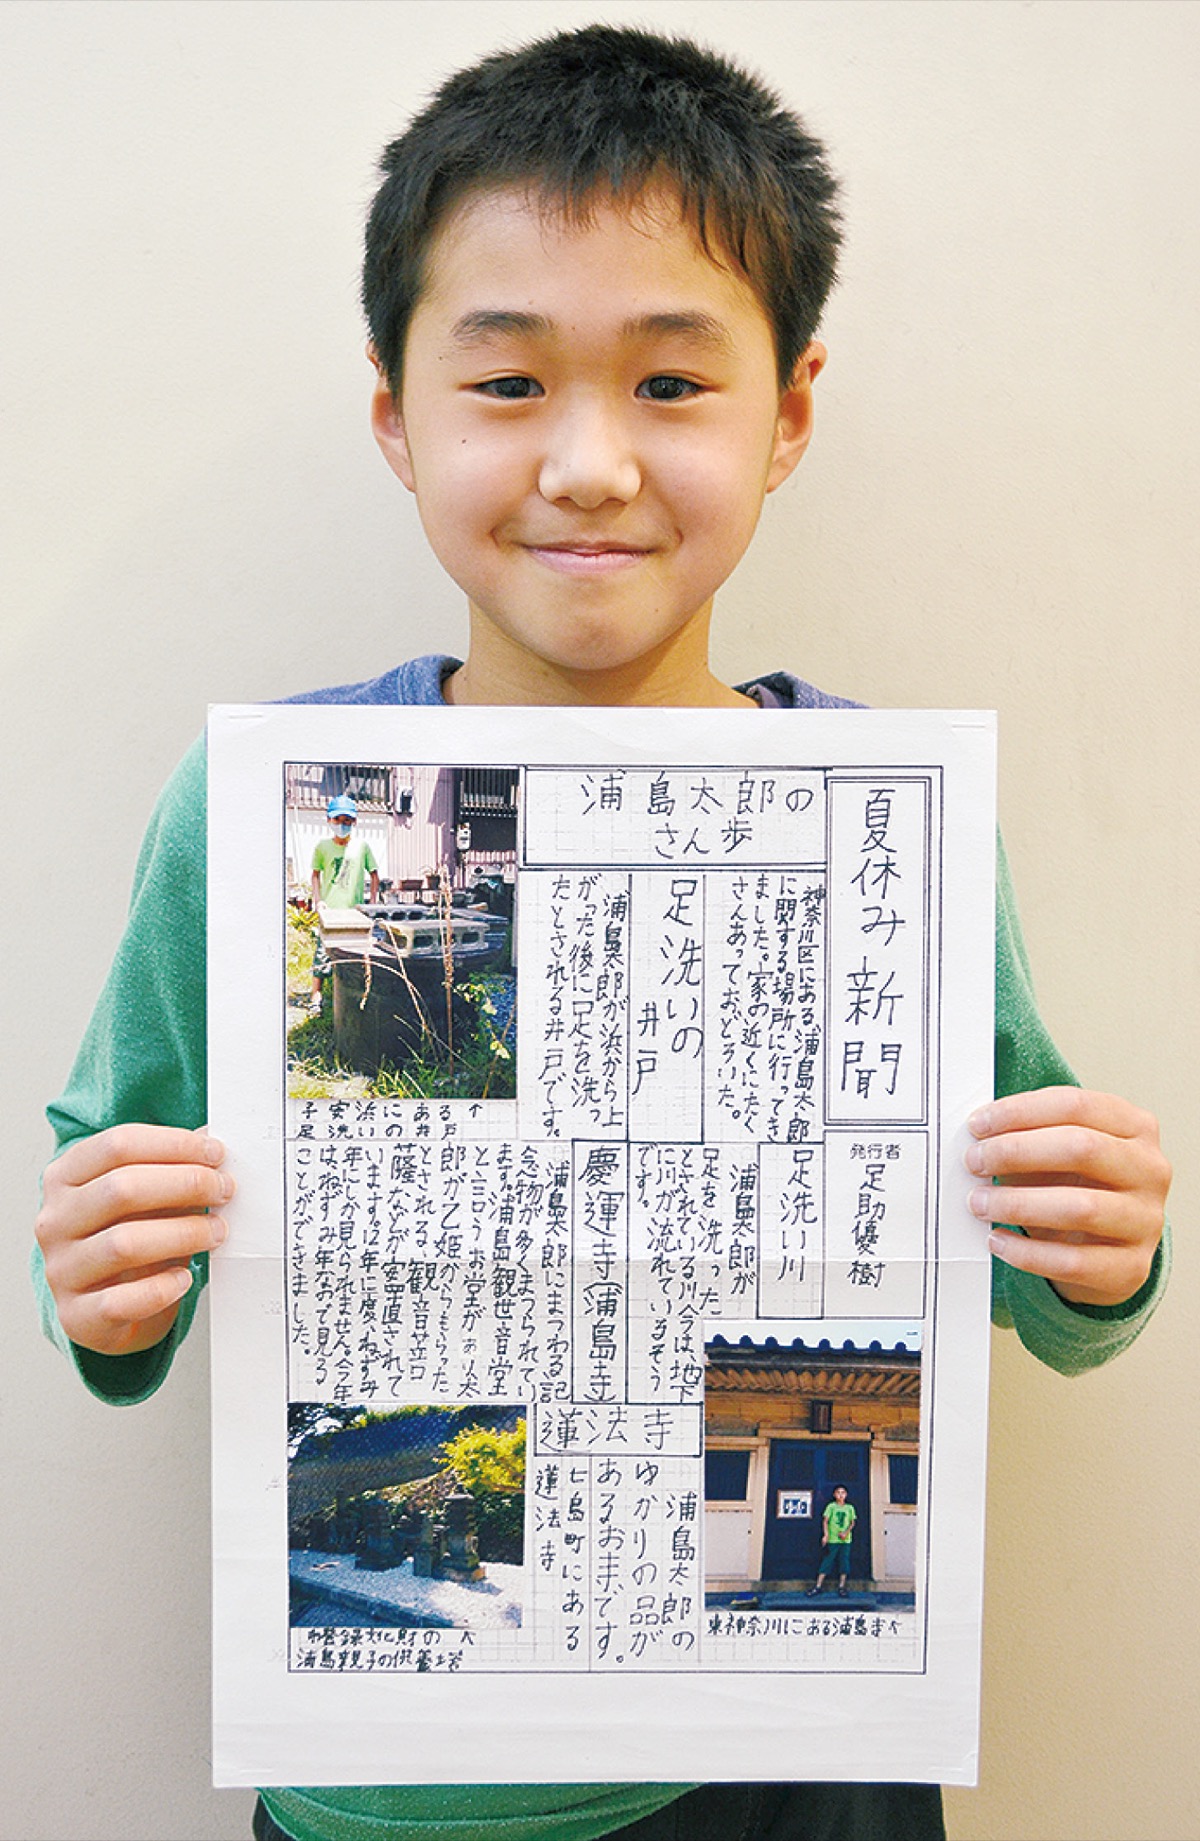 夏休み新聞
発行者
足助優樹
浦島太郎の
さん歩
神奈川区にある浦島太郎
に関する場所に行ってき
ました。家の近くにたく
さんあっておどろいた。
足洗いの
井戸
浦島太郎が浜から上
がった後に足を洗っ
たとされる井戸です。
子安浜にのある↑
足洗いの井戸
足洗い川
浦島太郎が
足を洗った
とされている川今は、地下
に川が流れているそう
です。
慶運寺(浦島寺)
浦島太郎にまつわる記
念物が多くまつられてい
ます。浦島観世音堂
と言うお堂があり太
郎が乙姫からもらった
とされる、観音菩
薩などが安置されて
います。12年に一度、ねずみ
年にしか見られません。今年
は、ねずみ年なので見る
ことができました。
東神奈川にある浦島寺↑
蓮法寺
浦島太郎の
ゆかりの品が
あるお寺です。
七島町にある
蓮法寺
登録文化財の↑
浦島親子の供養塔